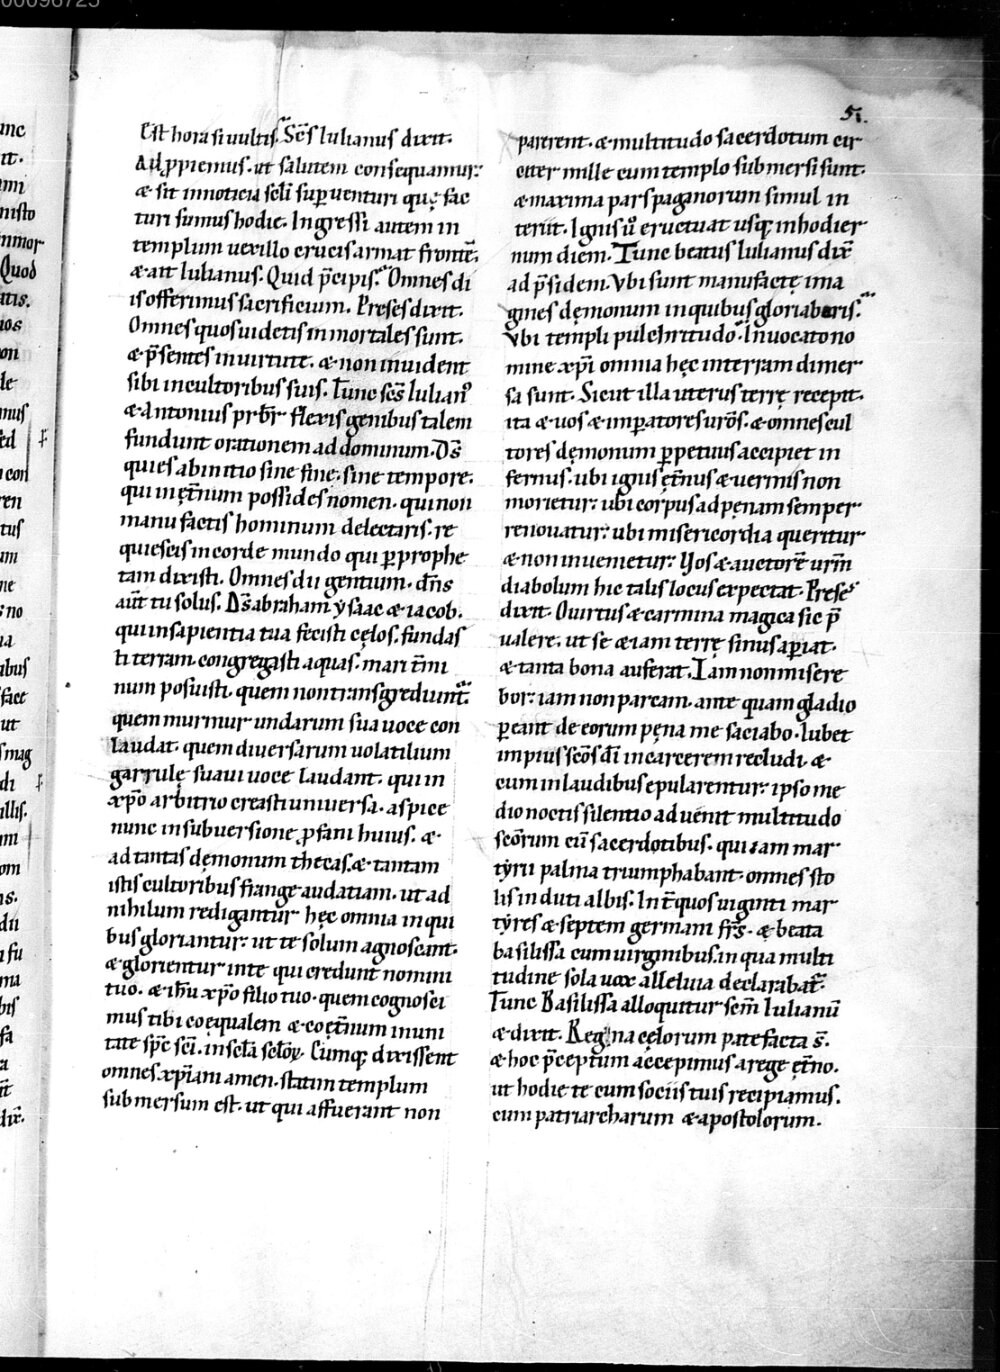 00098725
51.
Est hora si uultis. Sc̄s Iulianus dixit.
Adp̱piemus. ut salutem consequamur;
& sit innoticia sc̄li sup̱uenturi quę fac
turi sumus hodie. Ingressi autem in
templum uexillo crucis armat fronte̅.
& ait Iulianus. Quid p̄cipis. Omnes di
is offerimus sacrificium. Preses dixit.
Omnes quos uidetis inmortales sunt.
& p̄sentes in uirtute. & non inuident
sibi in cultoribus suis. Tunc sc̄s Iulian᷒
& Antonius prb̄r flexis genibus talem
fundunt orationem ad dominum. D̄s
qui es ab initio sine fine. sine tempore.
qui in ęt̄num possides nomen. qui non
manu factis hominum delectaris. re
quiescis in corde mundo qui p̱ prophe
tam dixisti. Omnes dii gentium. dm̄s
aūt tu solus. D̄s abraham ysaac & iacob.
qui in sapientia tua fecisti cęlos. fundas
ti terram. congregasti aquas. mari t̄mi
num posuisti. quem non transgrediunt᷑.
quem murmur undarum sua uoce con
laudat. quem diuersarum uolatilium
garrulę suaui uoce laudant. qui in
xp̄o arbitrio creasti uniuersa. aspice
nunc in subuersione p̱fani huius. &
ad tantas dęmonum thecas. & tantam
istis cultoribus frange audatiam. ut ad
nihilum redigantur hęc omnia in qui
bus gloriantur. ut te solum agnoscant.
& glorientur in te qui credunt nomini
tuo. & ih̄u xp̄o filio tuo. quem cognosci
mus tibi coęqualem & coęt̄num in uni
tate sp̄c sc̄i. in sc̄la sc̄loꝝ. Cumq; dixissent
omnes xp̄iani amen. statim templum
submersum est. ut qui affuerant non
parerent. & multitudo sacerdotum cir
citer mille cum templo submersi sunt.
& maxima pars paganorum simul in
teriit. Ignis ū eructuat usq; in hodier
num diem. Tunc beatus Iulianus dix̄
ad p̄sidem. Vbi sunt manufactę ima
gines dęmonum in quibus gloriabaris.
Vbi templi pulchritudo. Inuocato no
mine xp̄i omnia hęc in terram dimer
sa sunt. Sicut illa uterus terrę recepit.
ita & uos & imp̱atores ur̄os. & omnes cul
tores dęmonum p̱petuus accipiet in
fernus. ubi ignis ęt̄nus & uermis non
morietur. ubi corpus ad pęnam semper
renouatur. ubi misericordia queritur
& non inuenietur. Uos & auctore̅ ur̄m
diabolum hic talis locus expectat. Preses
dixit. O uirtus & carmina magica sic p̄
ualere. ut se & iam terrę sinus ap̱iat.
& tanta bona auferat. Iam non misere
bor. iam non paream. ante quam gladio
p̱eant de eorum pęna me saciabo. Iubet
impius sc̄os dī in carcerem recludi. &
cum in laudibus epularentur. ipso me
dio noctis silentio aduenit multitudo
sc̄orum cū sacerdotibus. qui iam mar
tyrii palma triumphabant. omnes sto
lis induti albis. Int̄ quos uiginti mar
tyres & septem germani fr̄s. & beata
basilissa cum uirginibus. in qua multi
tudine sola uox alleluia declarabat᷑.
Tunc Basilissa alloquitur sc̄m Iulianū
& dixit. Regina cęlorum patefacta s̄.
& hoc p̄ceptum accepimus a rege ęt̄no.
ut hodie te cum sociis tuis recipiamus.
cum patriarcharum & apostolorum.